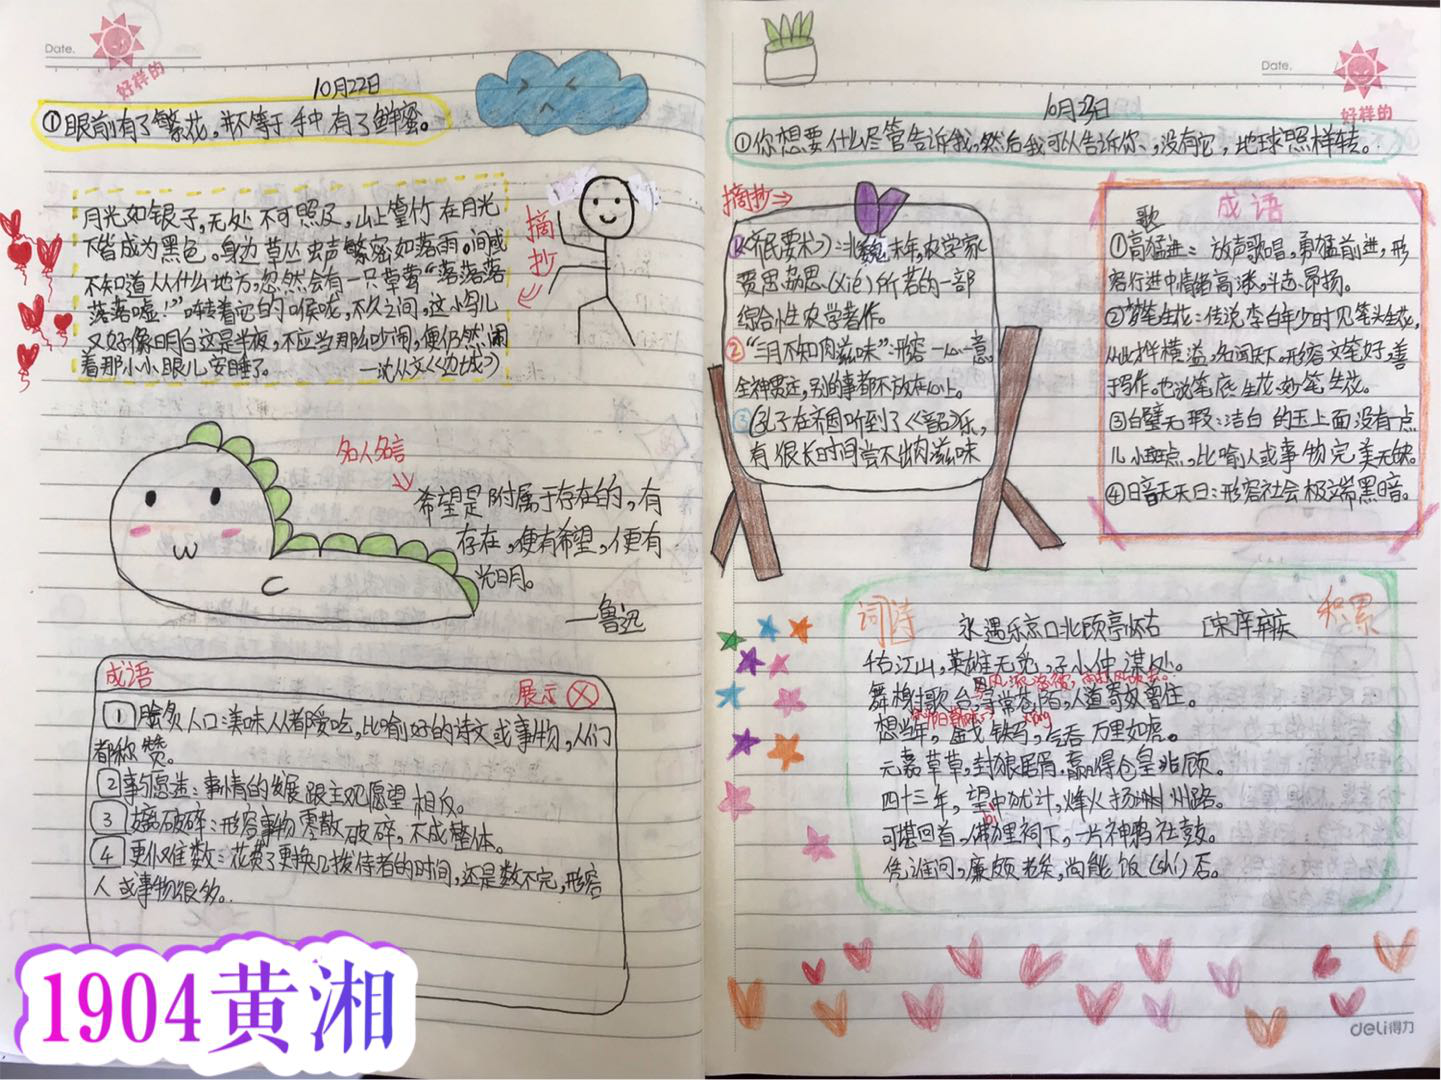 Date.
好样的
10月22日
①眼前有了繁花，并不等于手中有了鲜蜜。
月光如银子，无处不可照及，山上篁竹在月光
下皆成为黑色。身边草丛虫声繁密如落雨。间或
不知道从什么地方，忽然会有一只草莺“落落落
落落嘘！”啭着它的喉咙，不久之间，这小鸟儿
又好像明白这是半夜，不应当那么吵闹，便仍然闹
着那小小眼儿安睡了。 —沈从文《边城》
摘抄
名人名言
希望是附属于存在的，有
存在，便有希望，便有
光明。
—鲁迅
成语
展示
1 脍炙人口：美味人人都爱吃，比喻好的诗文或事物，人们
都称赞。
2 事与愿违：事情的发展跟主观愿望相反。
3 破碎：形容事物零散破碎，不成整体。
4 更仆难数：花费了更换几拨侍者的时间，还是数不完，形容
人或事物很多。
1904黄湘
Date.
好样的
10月23日
①你想要什么尽管告诉我，然后我可以告诉你，没有它，地球照样转。
摘抄
①《齐民要术》：北魏末年，农学家
贾思勰（xié）所著的一部
综合性农学著作。
②“三月不知肉滋味”：形容一心一意，
全神贯注，别的事都不放在心上。
③孔子在齐国听到了《韶》乐，
有很长时间尝不出肉滋味
成语
①高歌猛进：放声歌唱，勇猛前进，形
容行进中情绪高涨，斗志昂扬。
②梦笔生花：传说李白年少时见笔头生花，
从此才华横溢，名闻天下。形容文笔好，善
于写作。也说笔底生花、妙笔生花。
③白璧无瑕：洁白的玉上面没有一点
儿小斑点。比喻人或事物完美无缺。
④暗无天日：形容社会极端黑暗。
词诗
积累
永遇乐京口北顾亭怀古 [宋]辛弃疾
千古江山，英雄无觅，孙仲谋处。
舞榭歌台，风流总被，雨打风吹去。
寻常巷陌，人道寄奴曾住。
想当年，金戈铁马，气吞万里如虎。
元嘉草草，封狼居胥，赢得仓皇北顾。
四十三年，望中犹记，烽火扬州路。
可堪回首，佛狸祠下，一片神鸦社鼓。
凭谁问，廉颇老矣，尚能饭(shi)否。
deli得力